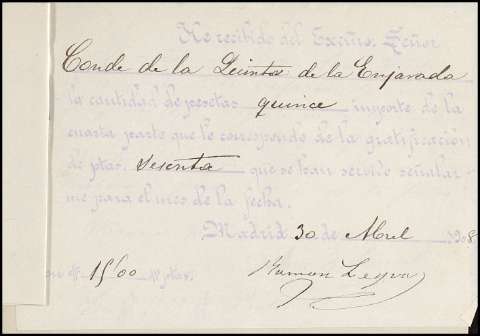 He recibido del Excmo. Señor
Conde de la Quinta de la Enjarada
la cantidad de pesetas quince importe de la
cuarta parte que le corresponde de la gratificación
de ptas. sesenta que se han servido señalar-
me para el mes de la fecha.
Madrid 30 de Abril 1908
15'00 ptas. Ramon Leyva